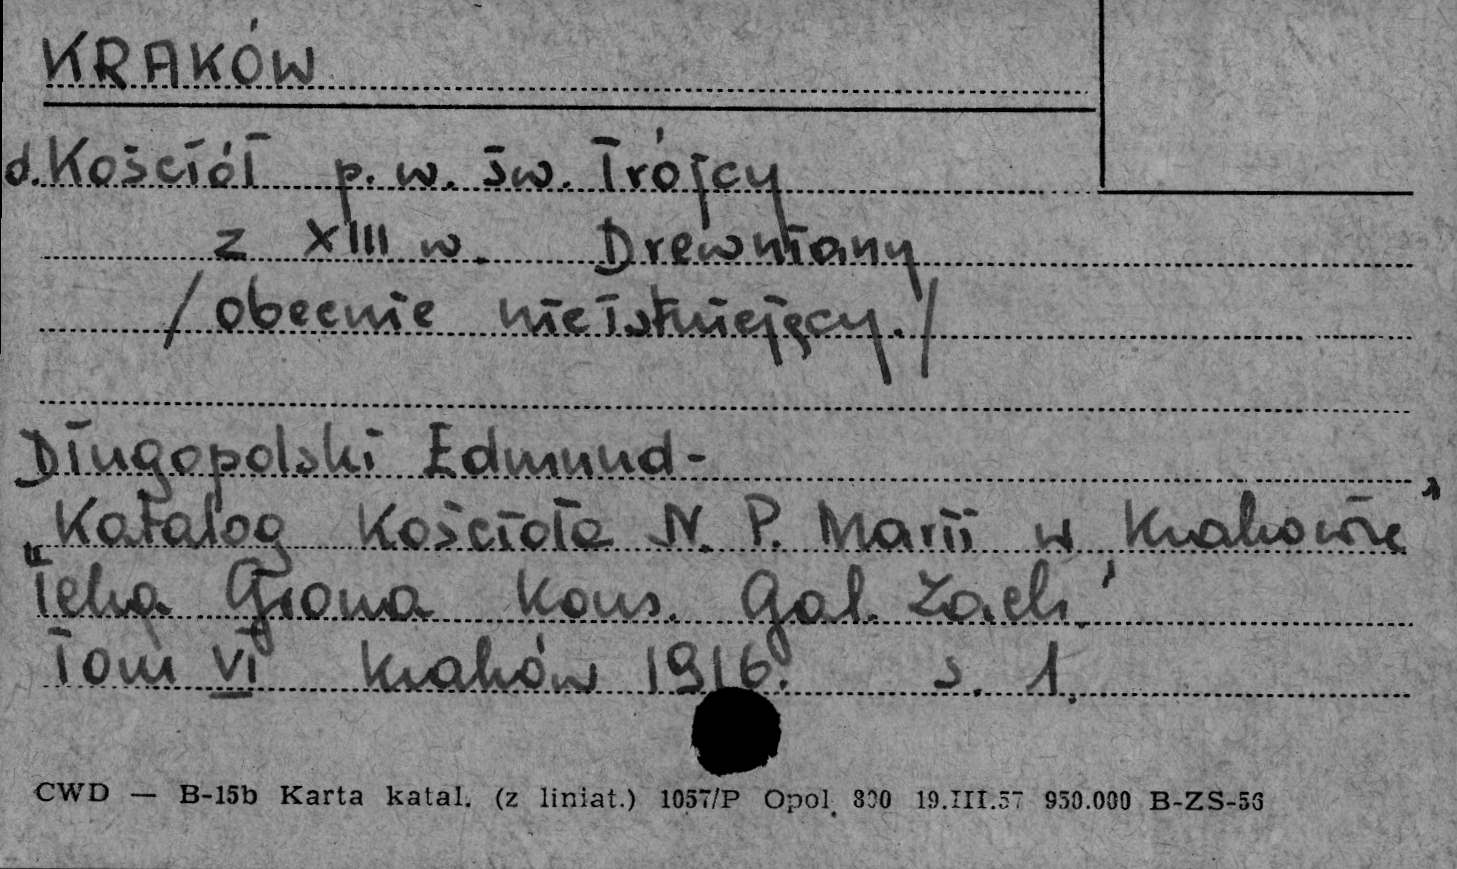 KRAKÓW
d. Kościół p. w. św. Trójcy
z XIII w. Drewniany
/obecnie nieistniejący./
Długopolski Edmund-
Katalog Kościoła N. P. Marii w Krakowie"
"Teka Grona Kons. Gal. Zach.'
Tom VI Kraków 1916. s. 1.
CWD — B-15b Karta katal. (z liniat.) 1057/P Opol. 800 19.III.57 950.000 B-ZS-56